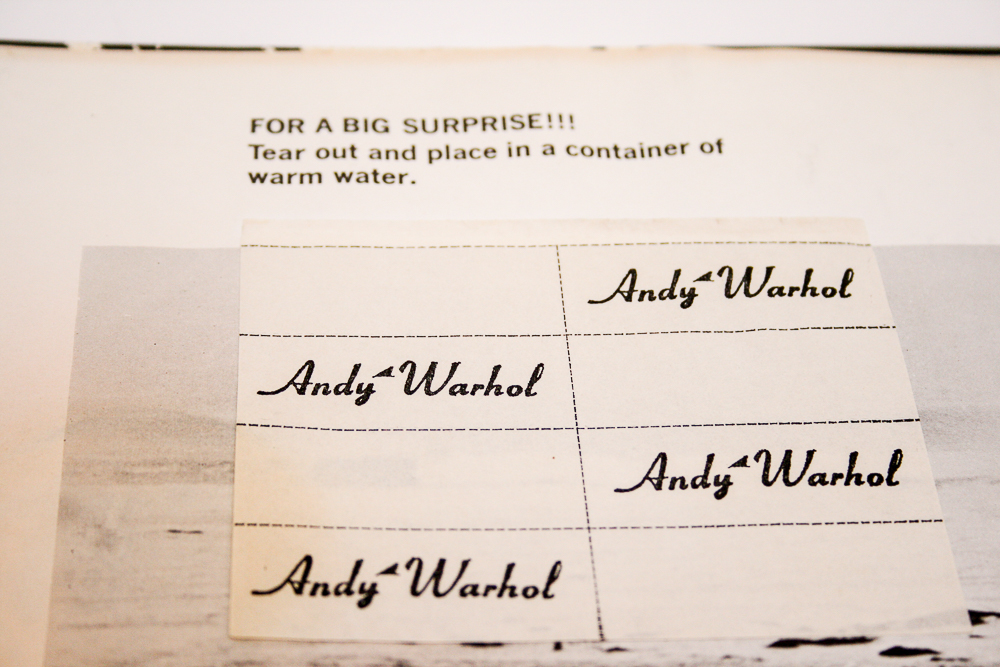 FOR A BIG SURPRISE!!!
Tear out and place in a container of
warm water.
Andy Warhol
Andy Warhol
Andy Warhol
Andy Warhol